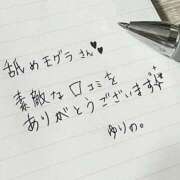 舐めモグラさん♥♥
素敵な口コミを
ありがとうございます✨
ゆりの。